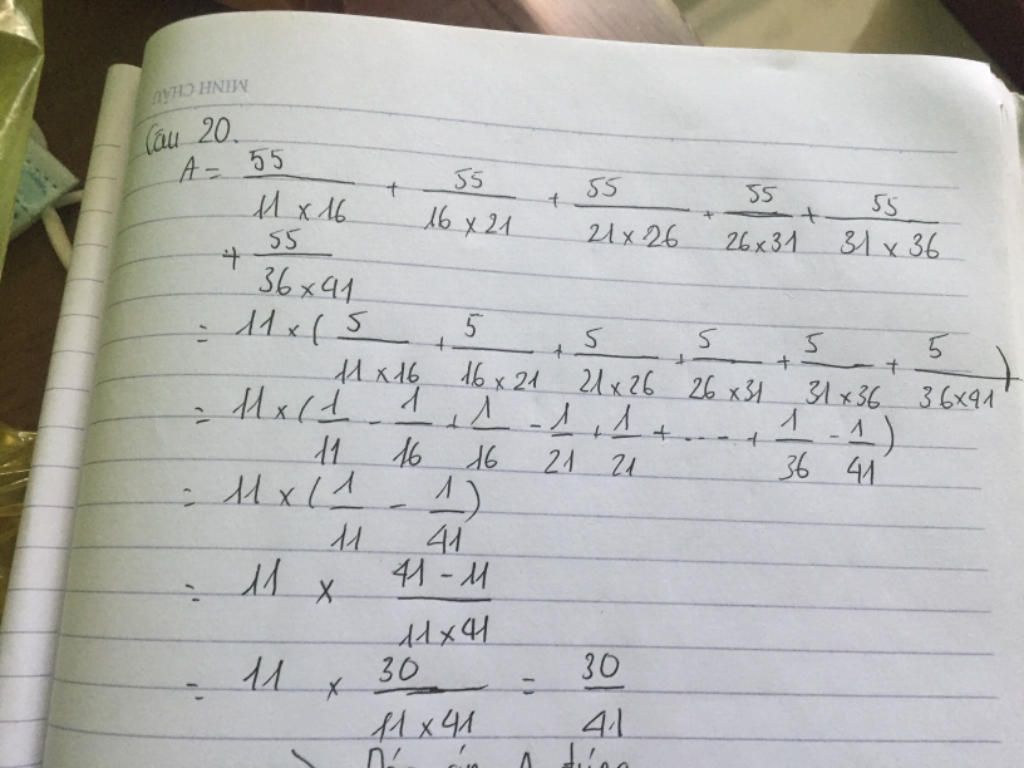 MINH CHÂU
Câu 20.
A = 55/(11 × 16) + 55/(16 × 21) + 55/(21 × 26) + 55/(26 × 31) + 55/(31 × 36)
+ 55/(36 × 41)
= 11 × ( 5/(11 × 16) + 5/(16 × 21) + 5/(21 × 26) + 5/(26 × 31) + 5/(31 × 36) + 5/(36 × 41) )
= 11 × ( 1/11 - 1/16 + 1/16 - 1/21 + 1/21 + ---- + 1/36 - 1/41 )
= 11 × ( 1/11 - 1/41 )
= 11 × (41 - 11)/(11 × 41)
= 11 × 30/(11 × 41) = 30/41
Đáp án A đúng